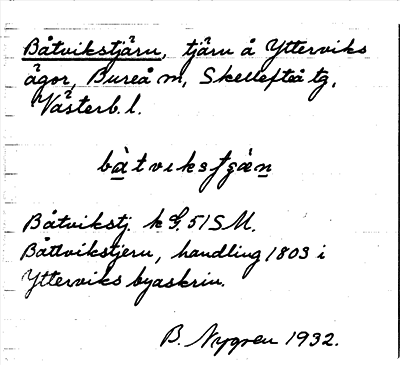 Båtvikstjärn, tjärn å Ytterviks
ägor, Bureå m, Skellefteå tg,
Västerb. l.
Båtvikstj. k G. 51 SM.
Båttvikstjern, handling 1803 i
Ytterviks byaskrin.
B. Nygren 1932.